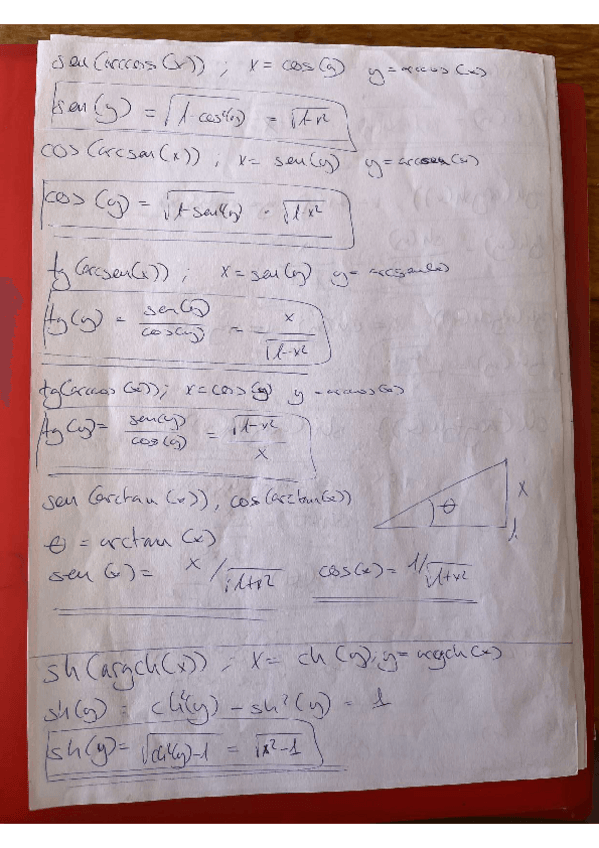 sen(arccos(x)) ; x = cos(y) y = arccos(x)
sen(y) = √(1-cos²(y)) = √(1-x²)
cos(arcsen(x)) ; x = sen(y) y = arcsen(x)
cos(y) = √(1-sen²(y)) = √(1-x²)
tg(arcsen(x)) ; x = sen(y) y = arcsen(x)
tg(y) = sen(y)/cos(y) = x/√(1-x²)
tg(arccos(x)) ; x = cos(y) y = arccos(x)
tg(y) = sen(y)/cos(y) = √(1-x²)/x
sen(arctan(x)), cos(arctan(x))
x
θ
1
θ = arctan(x)
sen(x) = x/√(1+x²) cos(x) = 1/√(1+x²)
sh(argch(x)) ; x = ch(y), y = argch(x)
sh(y) = ch²(y) - sh²(y) = 1
sh(y) = √(ch²(y)-1) = √(x²-1)